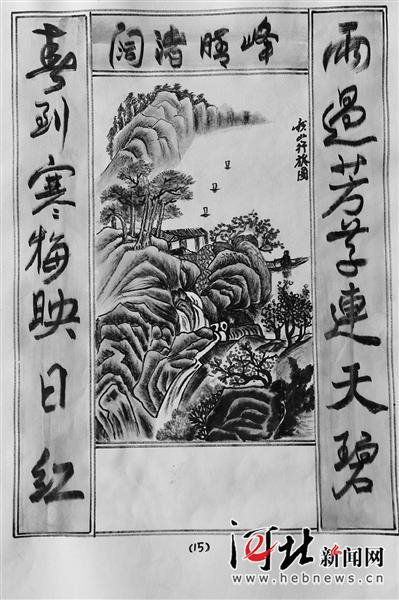 峰晴渚阔
雨過芳草連天碧
春到寒梅映日红
秋山行旅图
(15)
河北新闻网
www.hebnews.cn